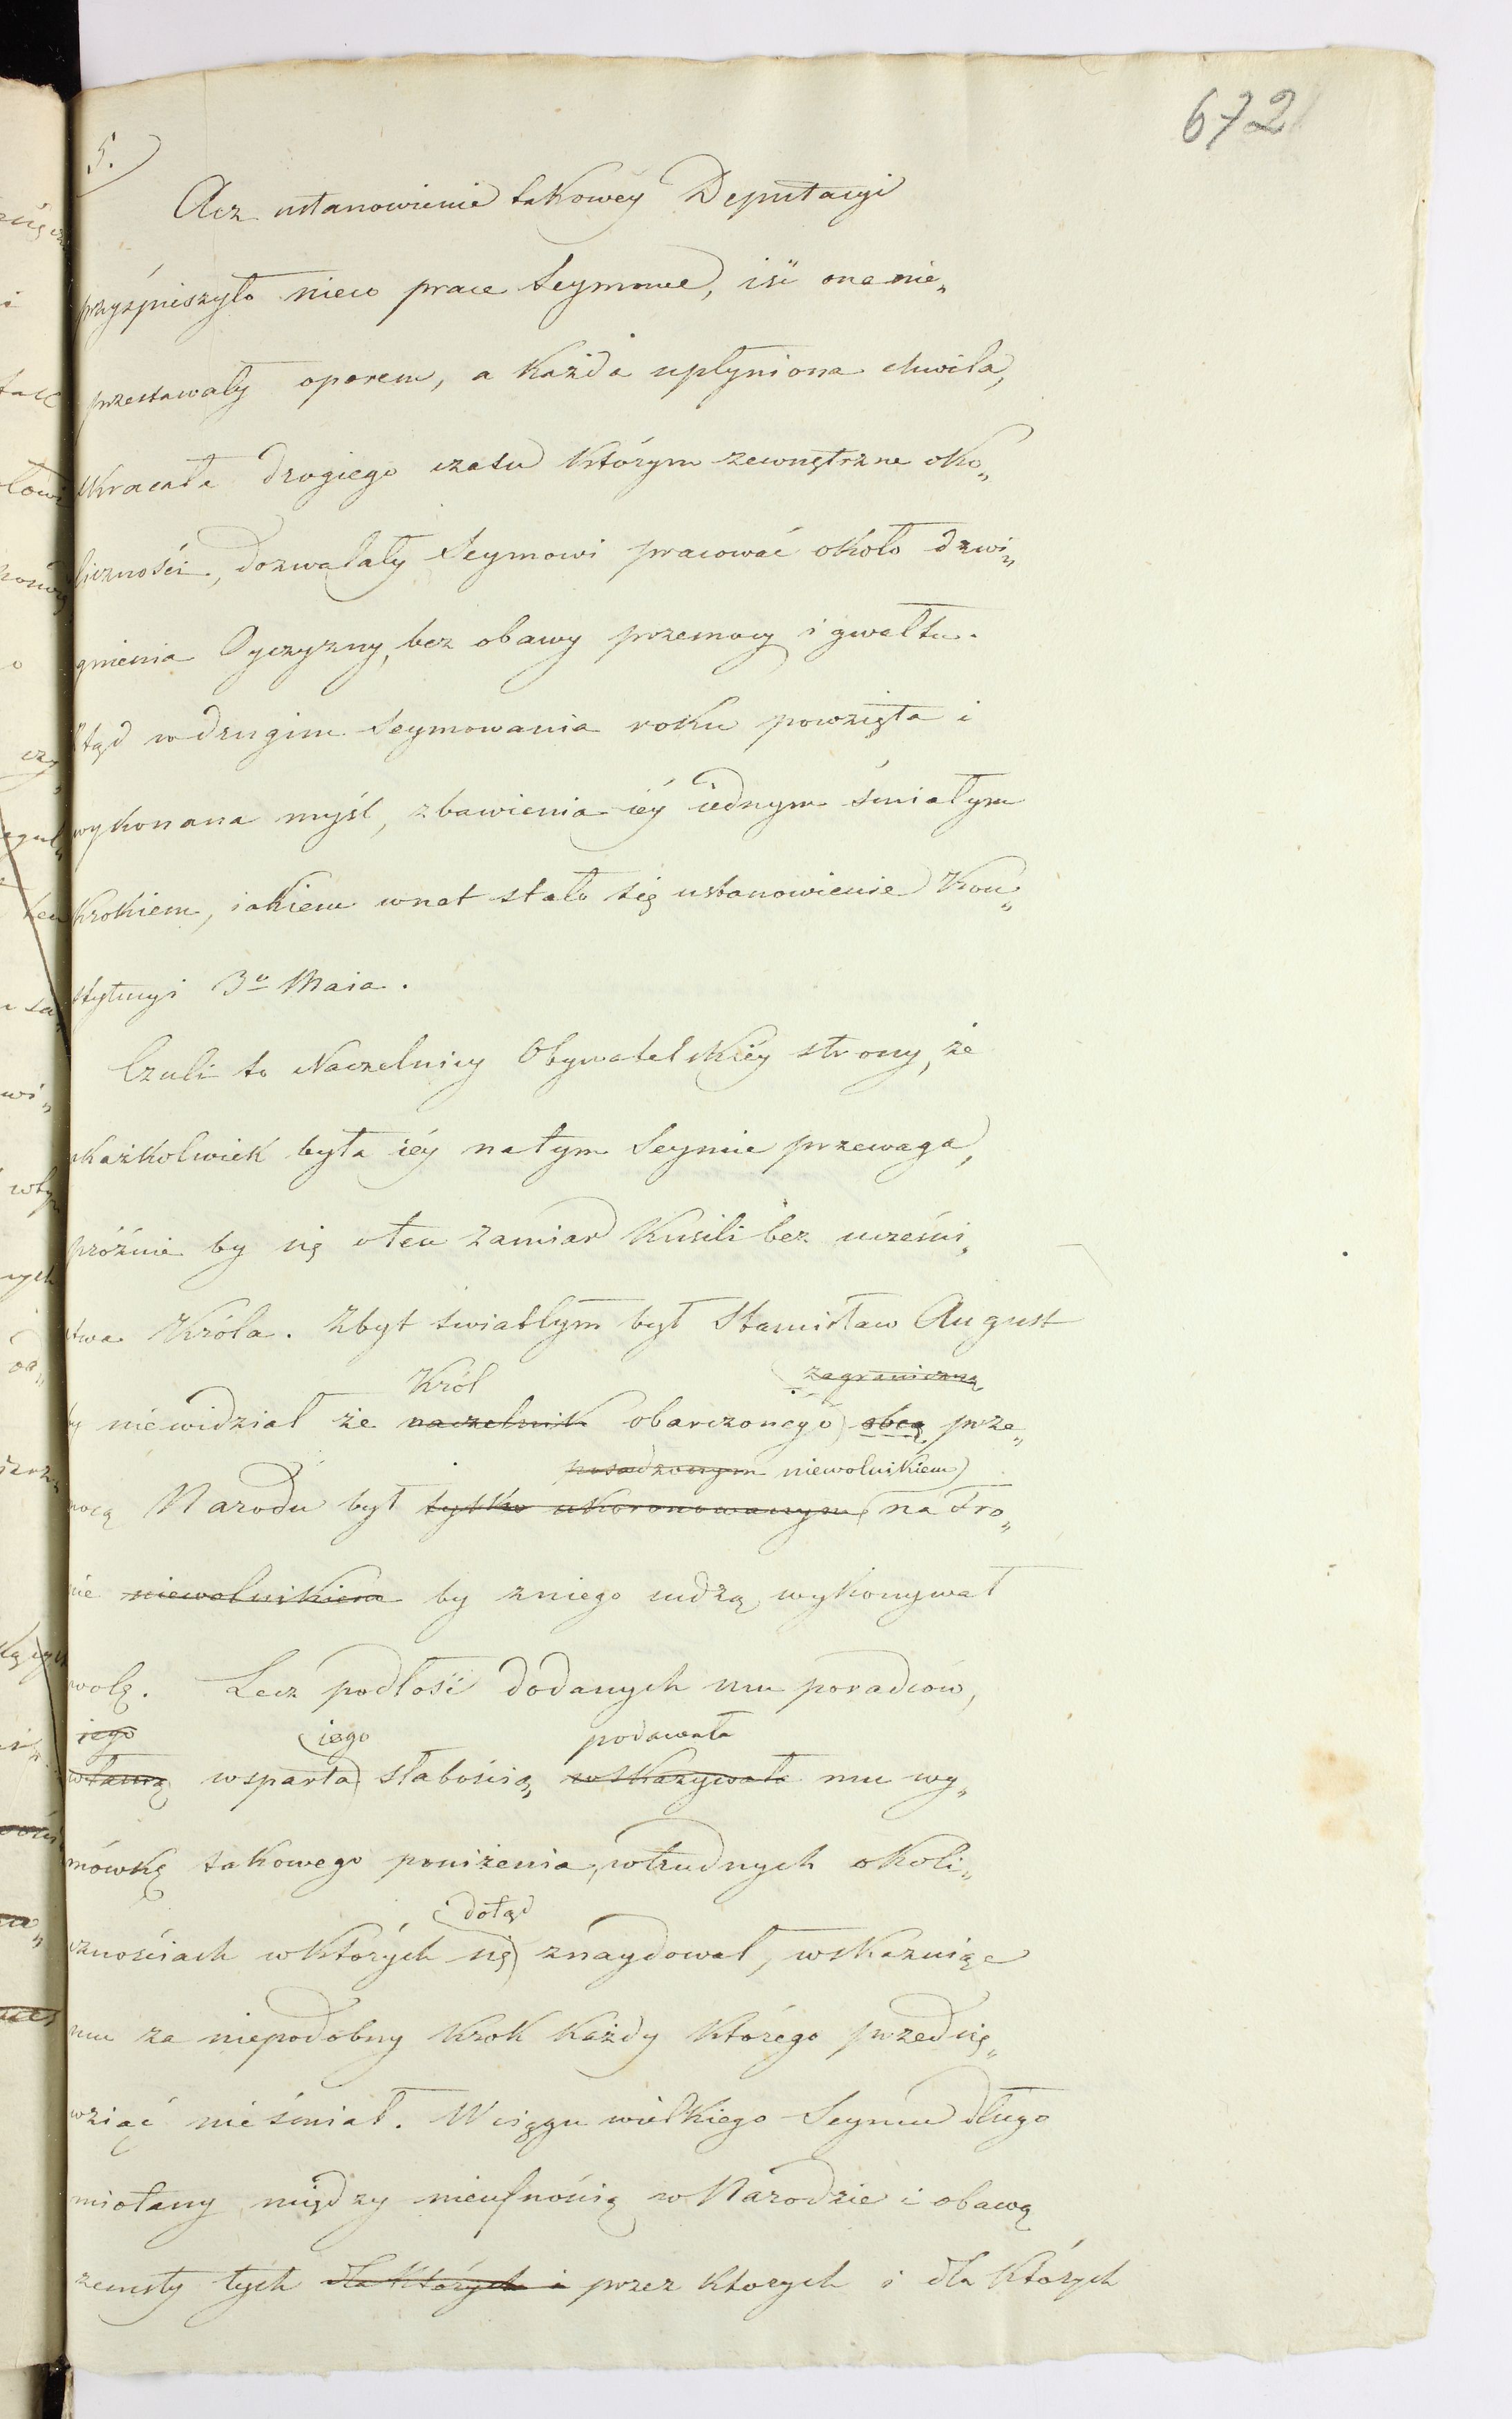 672
5.
Acz ustanowienie takowéy Deputacyi
przyśpieszyło nieco prace Seymowe, iść one nie„
przestawały oporem, a każda upłyniona chwila,
skracała drogiego czasu którym zewnętrzne oko„
liczności, dozwalały Seymowi pracować około dzwi„
gnienia Oyczyzny, bez obawy przemocy i gwałtu.
Ztąd w drugim Seymowania roku powzięta i
wykonana myśl, zbawienia iéy iednym śmiałym
krokiem, iakiem wnet stało się ustanowienie Kon„
stytucyi 3º Maia.
Czuli to Naczelnicy Obywatelskiéy strony, że
iakażkolwiek była iéy na tym Seymie przewaga,
próżnie by się o ten zamiar kusili bez uczesni„
ctwa Króla. Zbyt światłym był Stanisław August
Król zagraniczną
by niewidział że naczelnik obarczonego obcą prze„
posadzonym niewolnikiem
mocą Narodu był tylko ukoronowanym na Tro„
nie niewolnikiem by z niego cudzą wykonywał
wolę. Lecz podłość dodanych mu poradców,
iego iego podawała
własną wsparta słabością, wskazywała mu wy„
mówkę takowego poniżenia, w trudnych okoli„
dotąd
cznościach w których się znaydował, wskazuiąc
mu za niepodobny krok każdy którego przedsię„
wziąć nie śmiał. W ciągu wielkiego Seymu długo
miotany między nieufnością w Narodzie i obawą
zemsty tych dla których i przez ktorych i dla których